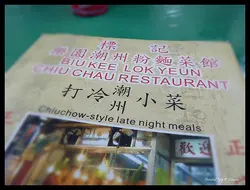 標記
樂園潮州粉麵菜館
BIU KEE LOK YEUN
CHIU CHAU RESTAURANT
打冷潮州小菜
Chiuchow-style late night meals
歡迎
正